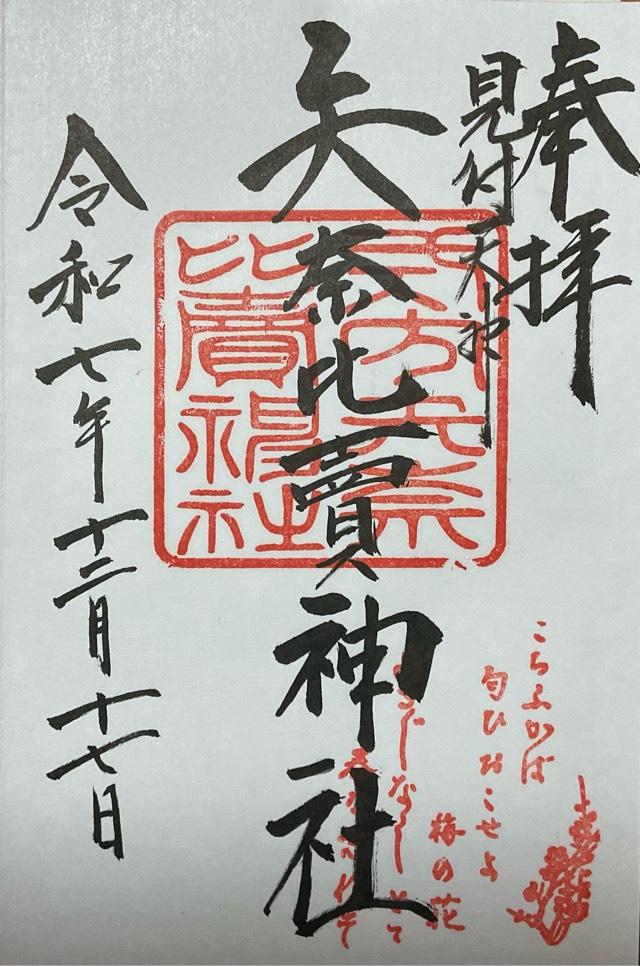 奉拝
見付天神
矢奈比賣神社
令和七年十二月十七日
こちふかば
匂ひおこせよ
梅の花
あるじなしとて
春なわすれそ